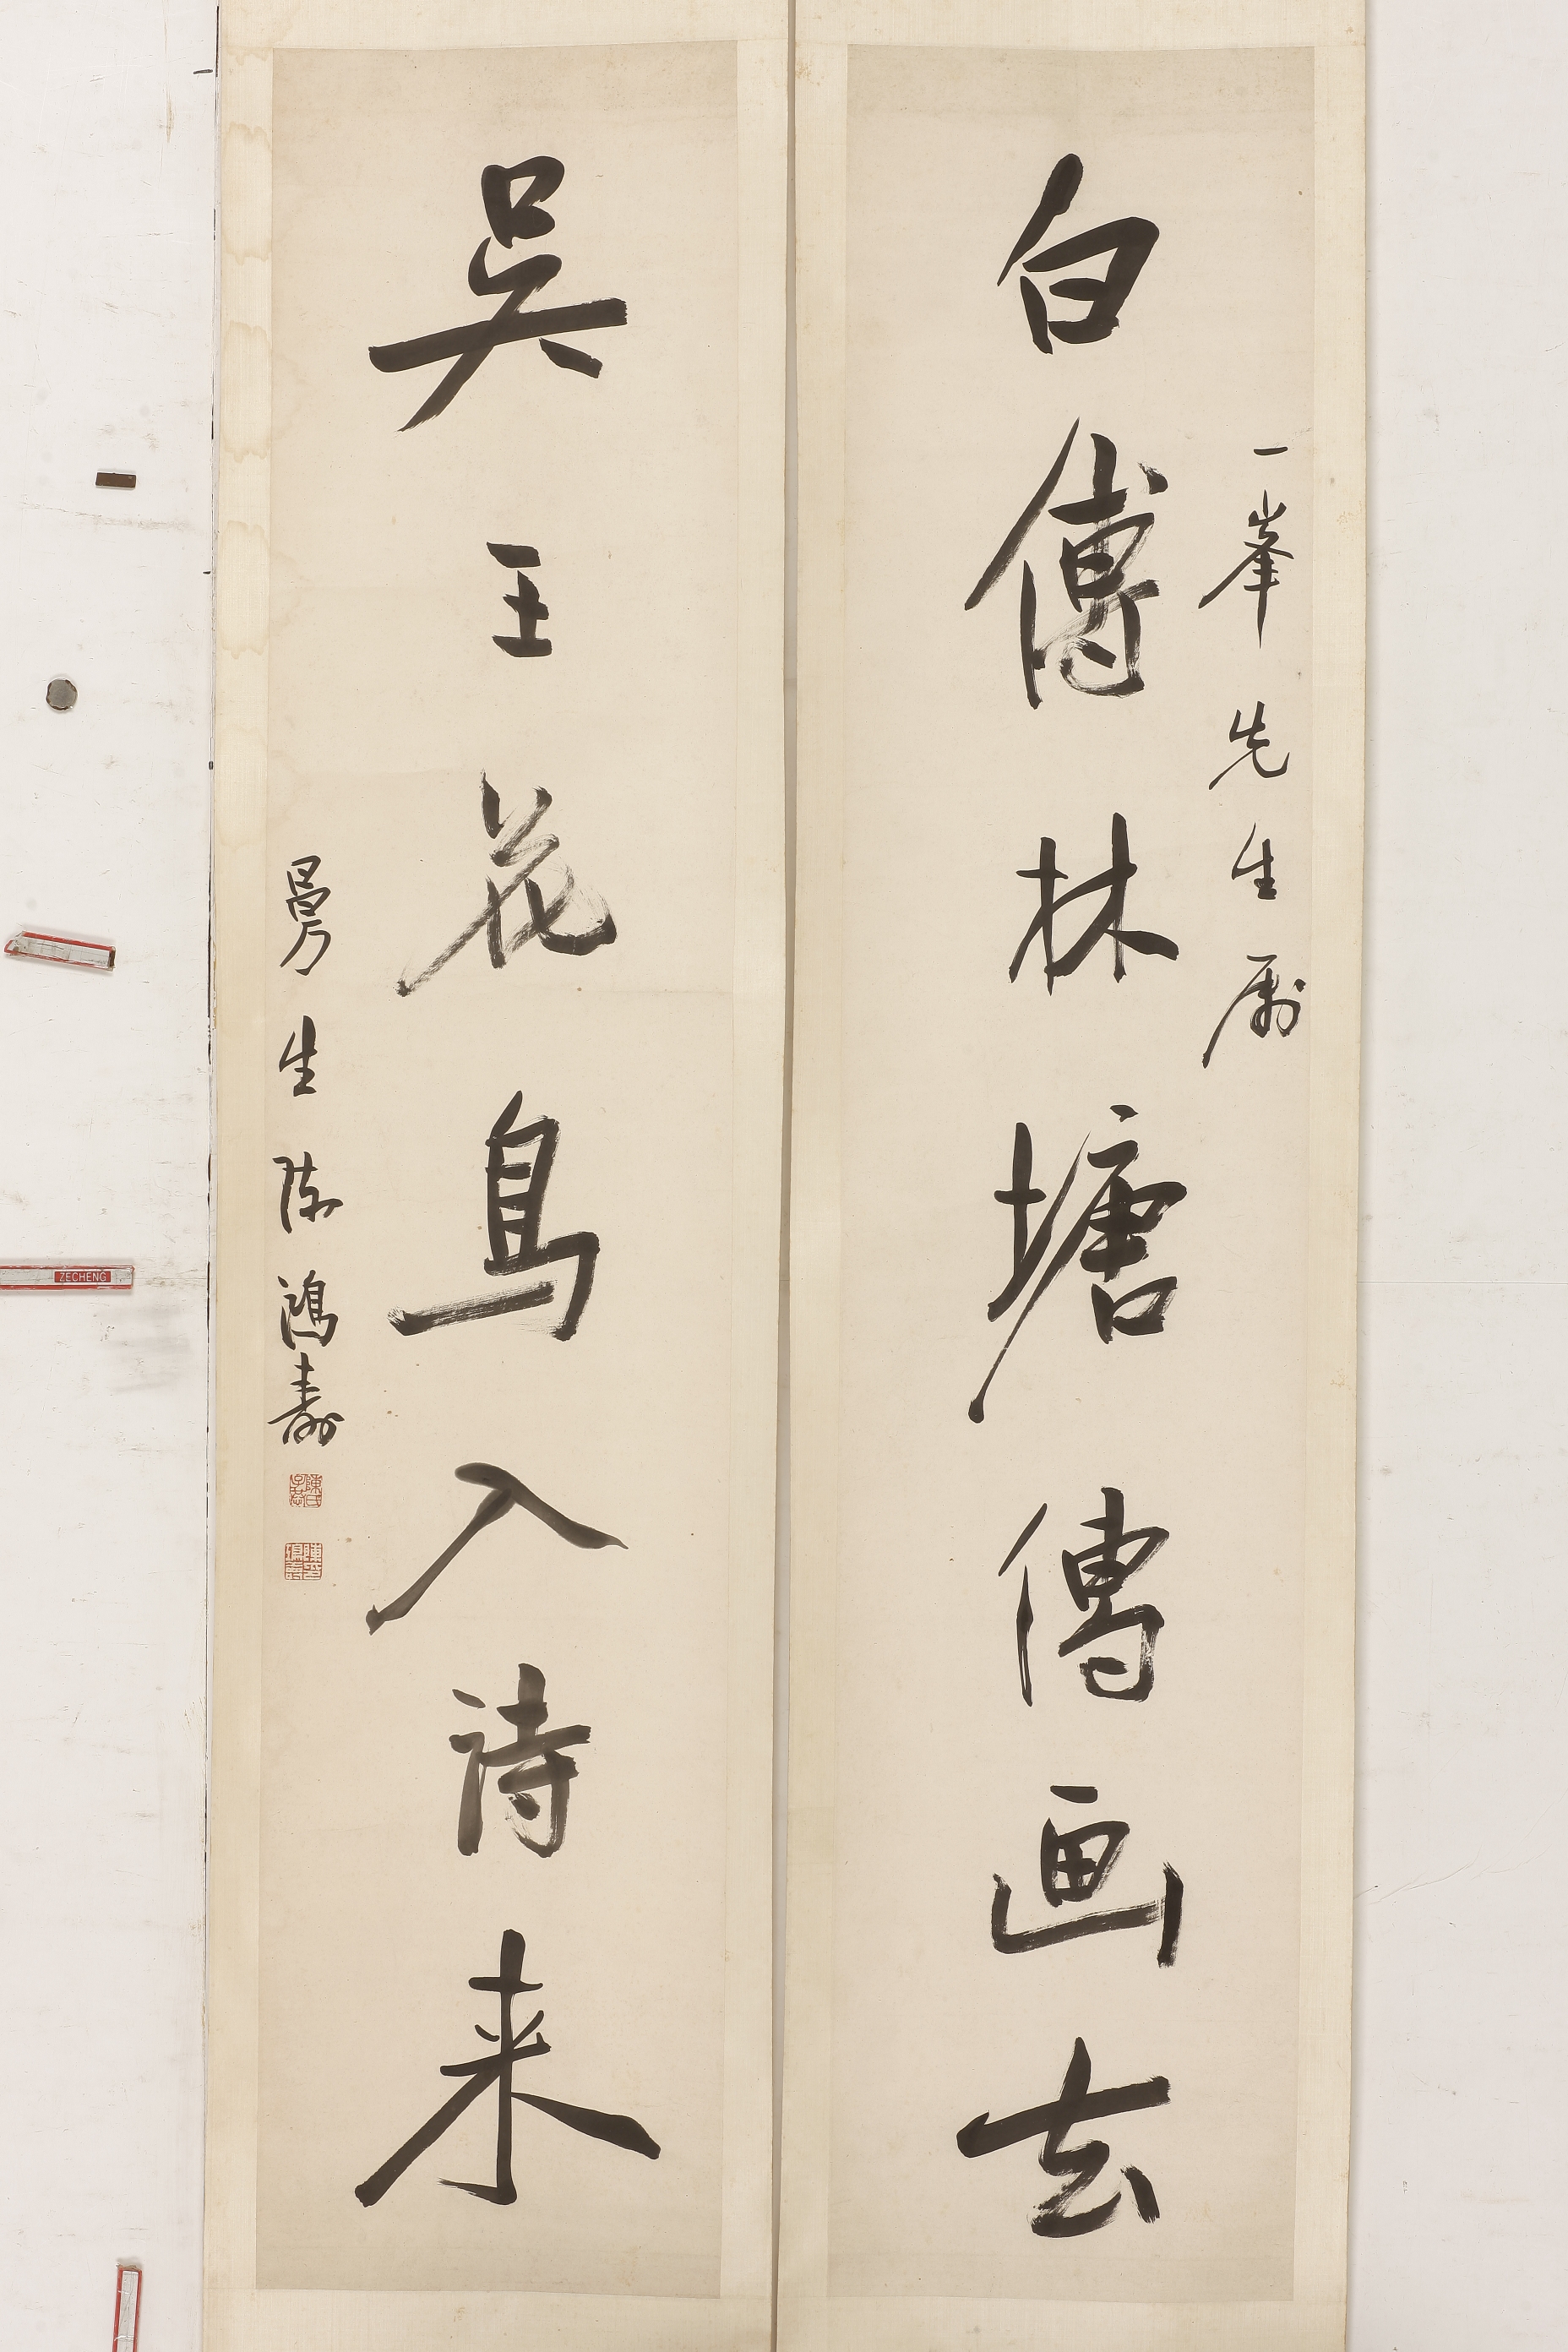 一峯先生属
白傅林塘傳画去
吳王花鳥入诗来
曼生陈鴻壽
ZECHENG